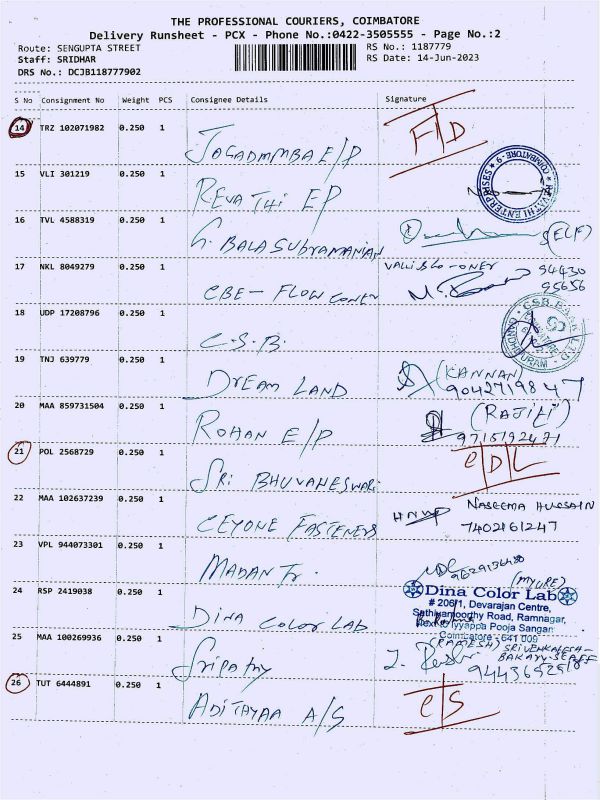 THE PROFESSIONAL COURIERS, COIMBATORE
Delivery Runsheet - PCX - Phone No.:0422-3505555 - Page No.:2
Route: SENGUPTA STREET RS No.: 1187779
Staff: SRIDHAR RS Date: 14-Jun-2023
DRS No.: DCJB118777902
S No Consignment No Weight PCS Consignee Details Signature
14 TRZ 102071982 0.250 1 JAGADMMBA E/P F/D
15 VLI 301219 0.250 1 REVATHI EP
REVATHI ENTERPRISES COIMBATORE-9
16 TVL 4588319 0.250 1 G. BALASUBRAMANIAN S(ELF)
17 NKL 8049279 0.250 1 CBE - FLOW CONER 94430
95656
18 UDP 17208796 0.250 1 C.S.B.
CSB BANK LTD GANDHIPURAM
19 TNJ 639779 0.250 1 DREAM LAND (KANNAN)
9042719847
20 MAA 859731504 0.250 1 ROHAN E/P (RAJILI)
9715192471
21 POL 2568729 0.250 1 SRI BHUVANESWARI e/D/L
22 MAA 102637239 0.250 1 CEYONE FASTENERS NASEEMA HUSSAIN
7402161247
23 VPL 944073301 0.250 1 MADAN Tr.
24 RSP 2419038 0.250 1 DINA COLOR LAB
Dina Color Lab
# 206/1, Devarajan Centre,
Sathiyamoorthy Road, Ramnagar,
Next Ayyappa Pooja Sangam
Coimbatore - 641 009
25 MAA 100269936 0.250 1 Sripathy (RAMESH) SRIVENKALESH-
BAKARY STAFF
26 TUT 6444891 0.250 1 ADITAYAA A/S e/S